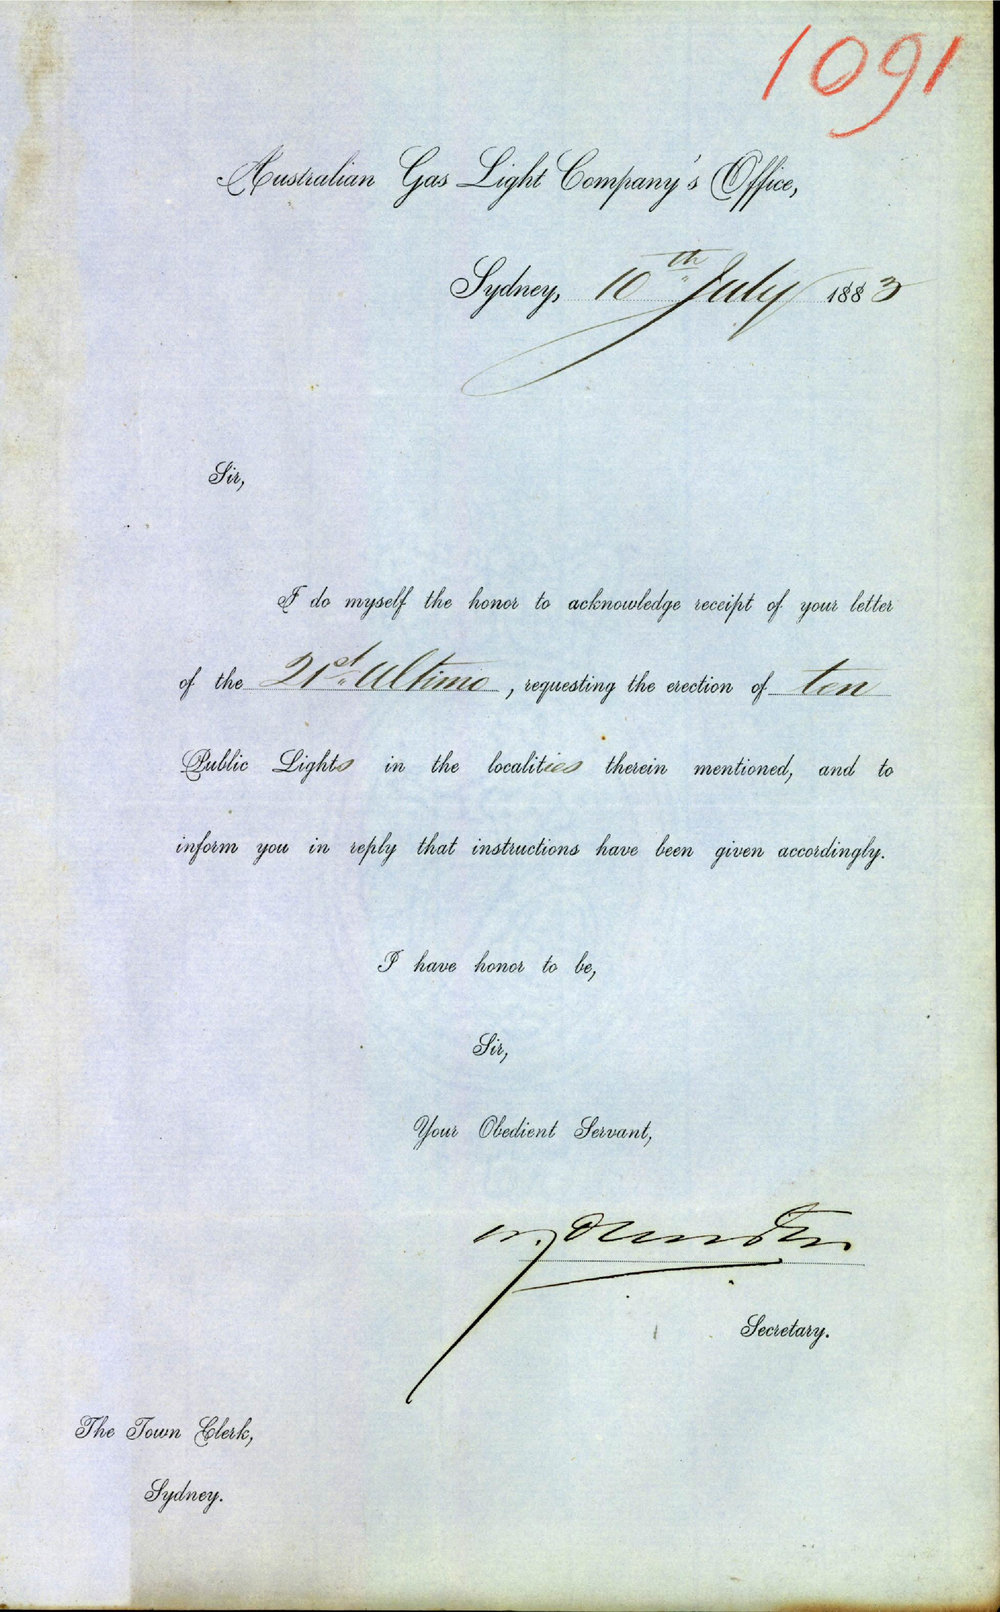 1091
Australian Gas Light Company's Office,
Sydney, 10th July 1883
Sir,
I do myself the honor to acknowledge receipt of your letter
of the 21st Ultimo, requesting the erection of ten
Public Lights in the localities therein mentioned, and to
inform you in reply that instructions have been given accordingly.
I have honor to be,
Sir,
Your Obedient Servant,
Secretary.
The Town Clerk,
Sydney.